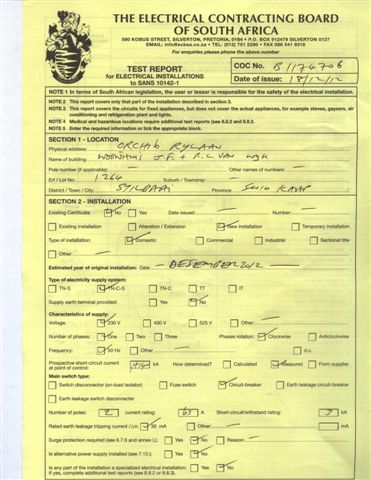 THE ELECTRICAL CONTRACTING BOARD
OF SOUTH AFRICA
590 KOBUS STREET, SILVERTON, PRETORIA, 0184 • P.O. BOX 912479 SILVERTON 0127
EMAIL: info@ecbsa.co.za • TEL: (012) 731 2290 • FAX 086 541 5318
For enquiries please phone the above number
TEST REPORT
for ELECTRICAL INSTALLATIONS
to SANS 10142-1
COC No. B1174706
Date of issue: 18/12/12
NOTE 1 In terms of South African legislation, the user or lessor is responsible for the safety of the electrical installation.
NOTE 2 This report covers only that part of the installation described in section 3.
NOTE 3 This report covers the circuits for fixed appliances, but does not cover the actual appliances, for example stoves, geysers, air
conditioning and refrigeration plant and lights.
NOTE 4 Medical and hazardous locations require additional test reports (see 8.8.2 and 8.8.3).
NOTE 5 Enter the required information or tick the appropriate block.
SECTION 1 - LOCATION
Physical address: ORCHID RYLAAN
Name of building: WOONHUIS J.F. + R.L VAN WYK
Pole number (if applicable): Other names of numbers:
Erf / Lot No.: 1264 Suburb / Township:
District / Town / City: STILBAAI Province: SUID KAAP
SECTION 2 - INSTALLATION
Existing Certificate No Yes Date issued: Number:
Existing installation Alteration / Extension New installation Temporary installation
Type of installation: Domestic Commercial Industrial Sectional title
Other:
Estimated year of original installation: Date DESEMBER 2012
Type of electricity supply system:
TN-S TN-C-S TN-C TT IT
Supply earth terminal provided: Yes No
Characteristics of supply:
Voltage: 230 V 400 V 525 V Other:
Number of phases: One Two Three Phases rotation: Clockwise Anticlockwise
Frequency: 50 Hz Other d.c.
Prospective short-circuit current
at point of control: kA How determined? Calculated Measured From supplier
Main switch type:
Switch disconnector (on-load isolator) Fuse switch Circuit-breaker Earth leakage circuit-breaker
Earth leakage switch disconnector
Number of poles: 2 current rating: 63 A Short-circuit/withstand rating: kA
Rated earth leakage tripping current IΔn: 30 mA Other mA
Surge protection required (see 6.7.6 and annex L): Yes No Reason:
Is alternative power supply installed (see 7.12.): Yes No
Is any part of the installation a specialized electrical installation? Yes No
If yes, complete additional test reports (see 8.8.2 or 8.8.3).